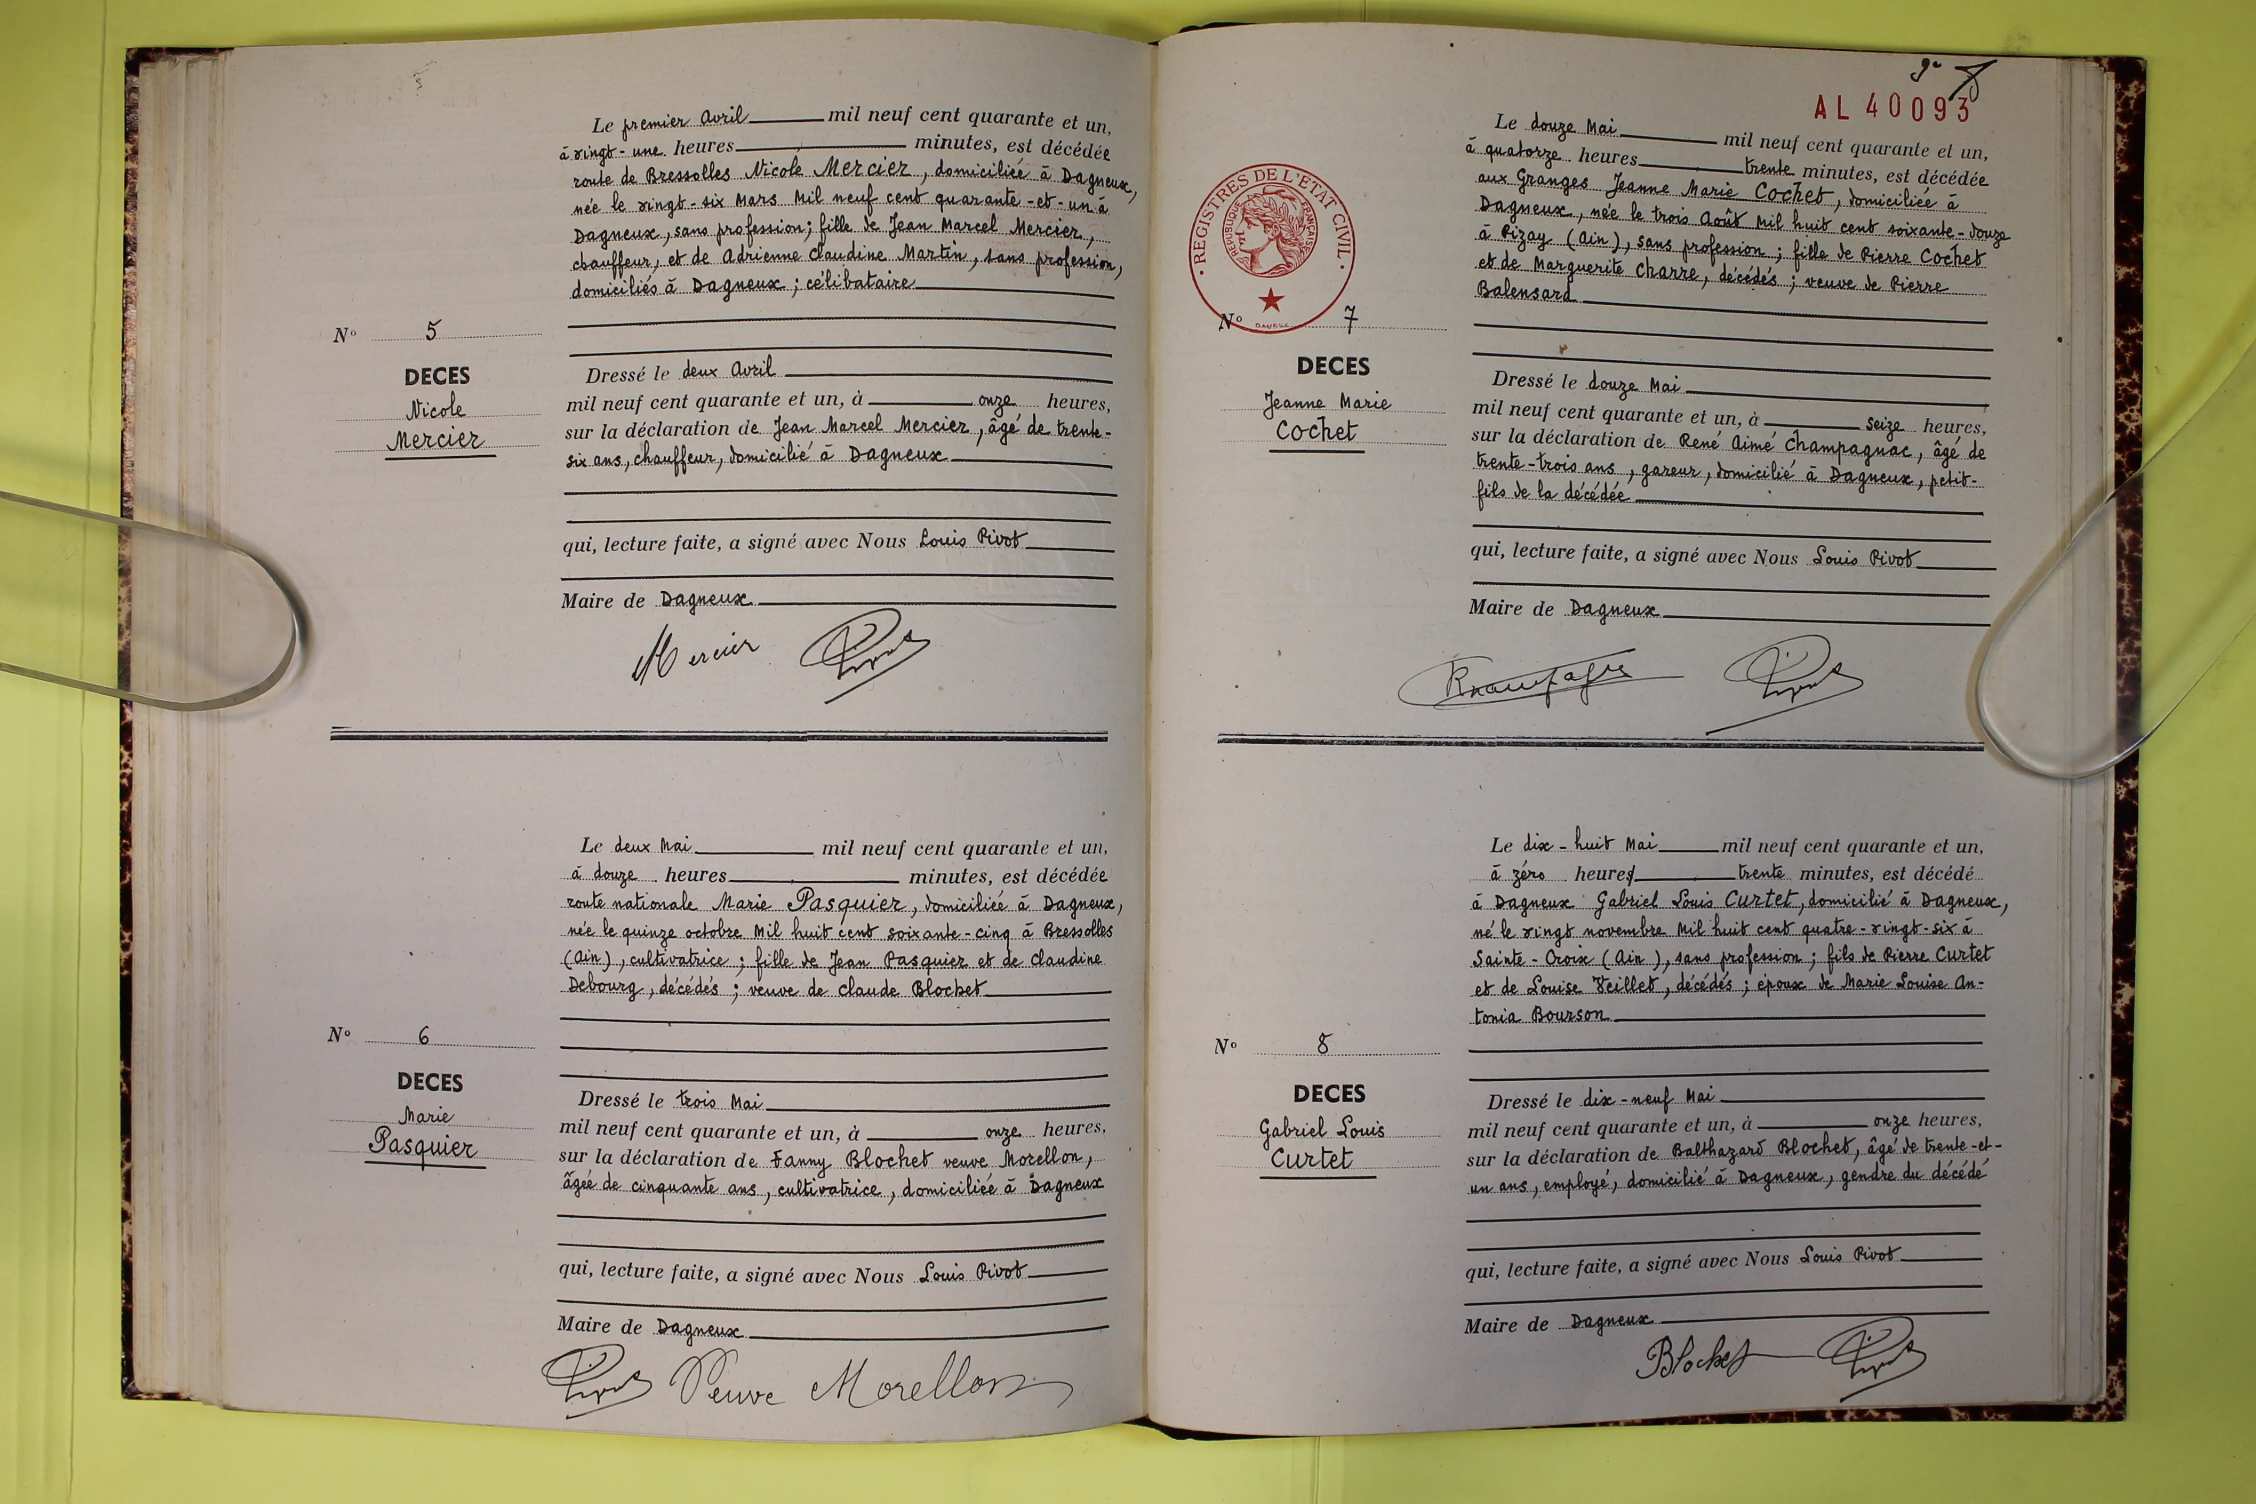 Le premier Avril mil neuf cent quarante et un,
à vingt-une heures minutes, est décédée
route de Bressolles Nicole Mercier, domiciliée à Dagneux,
née le vingt-six Mars Mil neuf cent quarante-et-un à
Dagneux, sans profession; fille de Jean Marcel Mercier,
chauffeur, et de Adrienne Claudine Martin, sans profession,
domiciliés à Dagneux; célibataire
N° 5
DECES
Nicole
Mercier
Dressé le deux Avril
mil neuf cent quarante et un, à onze heures,
sur la déclaration de Jean Marcel Mercier, âgé de trente-
six ans, chauffeur, domicilié à Dagneux
qui, lecture faite, a signé avec Nous Louis Pivot
Maire de Dagneux
Mercier Pivot
Le deux Mai mil neuf cent quarante et un,
à douze heures minutes, est décédée
route nationale Marie Pasquier, domiciliée à Dagneux,
née le quinze octobre Mil huit cent soixante-cinq à Bressolles
(Ain), cultivatrice; fille de Jean Pasquier et de Claudine
Debourg, décédés; veuve de Claude Blochet
N° 6
DECES
Marie
Pasquier
Dressé le trois Mai
mil neuf cent quarante et un, à onze heures,
sur la déclaration de Fanny Blochet veuve Morellon,
âgée de cinquante ans, cultivatrice, domiciliée à Dagneux
qui, lecture faite, a signé avec Nous Louis Pivot
Maire de Dagneux
Pivot Veuve Morellon
AL 40093
REGISTRES DE L'ETAT CIVIL
REPUBLIQUE FRANÇAISE
Le douze Mai mil neuf cent quarante et un,
à quatorze heures trente minutes, est décédée
aux Granges Jeanne Marie Cochet, domiciliée à
Dagneux, née le trois Août Mil huit cent soixante-douze
à Rizay (Ain), sans profession; fille de Pierre Cochet
et de Marguerite Charre, décédés; veuve de Pierre
Balensard
N° 7
DECES
Jeanne Marie
Cochet
Dressé le douze Mai
mil neuf cent quarante et un, à seize heures,
sur la déclaration de René Aimé Champagnac, âgé de
trente-trois ans, gareur, domicilié à Dagneux, petit-
fils de la décédée
qui, lecture faite, a signé avec Nous Louis Pivot
Maire de Dagneux
Pivot
Le dix-huit Mai mil neuf cent quarante et un,
à zéro heures trente minutes, est décédé
à Dagneux Gabriel Louis Curtet, domicilié à Dagneux,
né le vingt novembre Mil huit cent quatre-vingt-six à
Sainte-Croix (Ain), sans profession; fils de Pierre Curtet
et de Louise Veillet, décédés; époux de Marie Louise An-
tonia Bourson
N° 8
DECES
Gabriel Louis
Curtet
Dressé le dix-neuf Mai
mil neuf cent quarante et un, à onze heures,
sur la déclaration de Balthazard Blochet, âgé de trente-et-
un ans, employé, domicilié à Dagneux, gendre du décédé
qui, lecture faite, a signé avec Nous Louis Pivot
Maire de Dagneux
Blochet Pivot